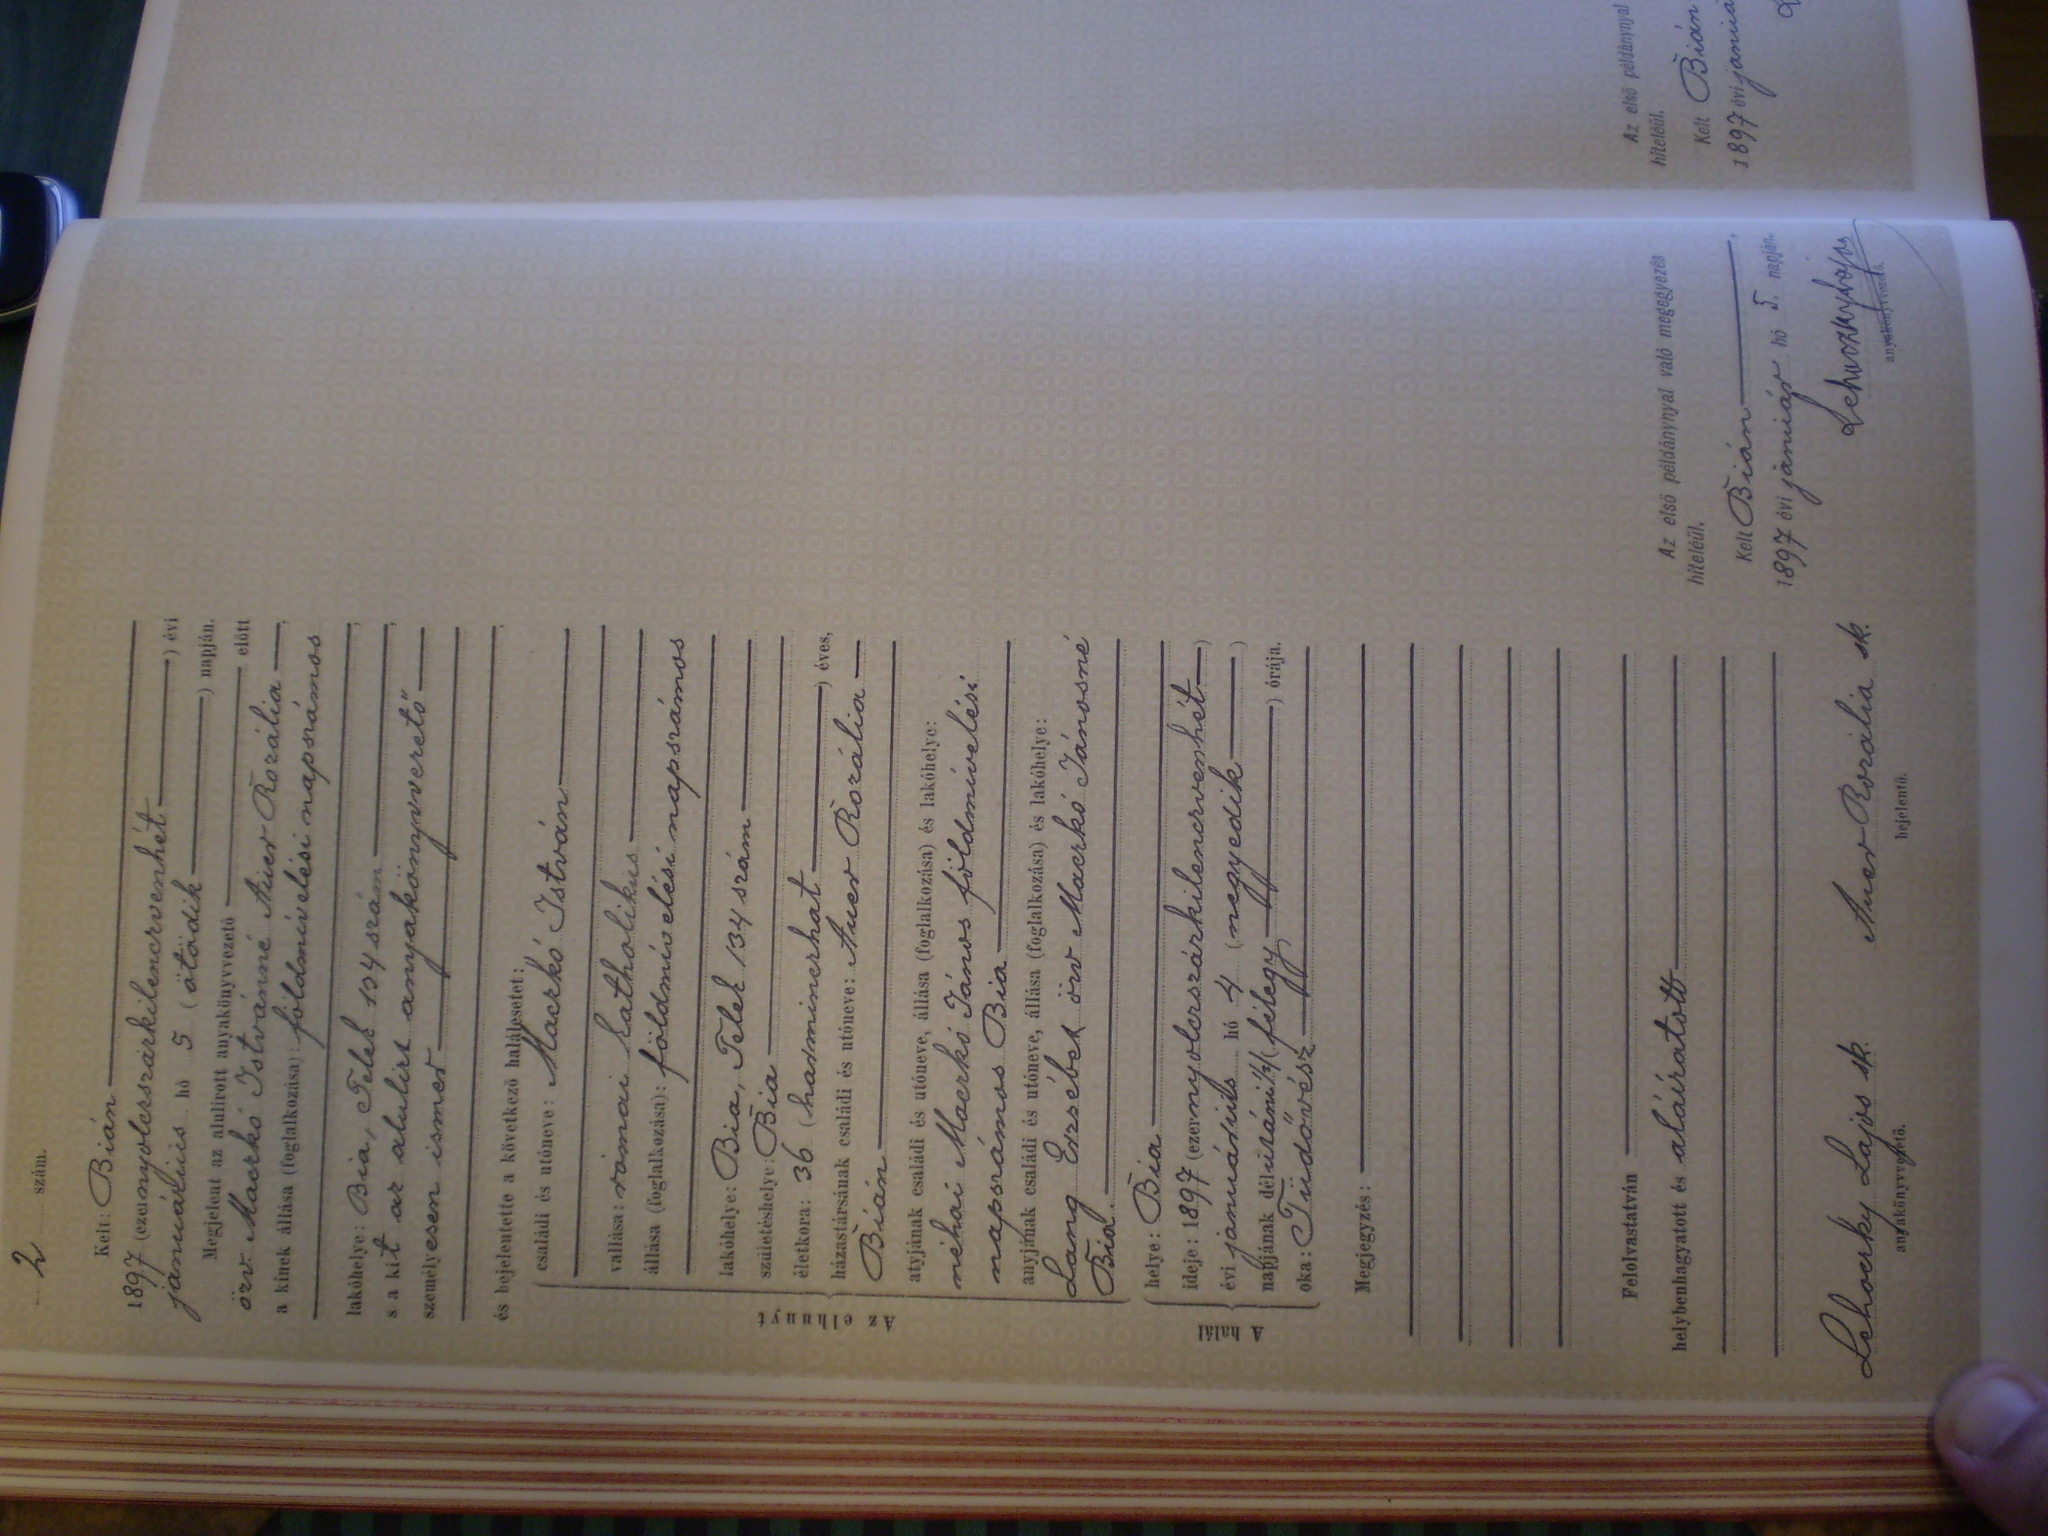 2 szám.
Kelt: Bián
1897 (ezernyolczszázkilenczvenhét) évi
januárius hó 5 (ötödik) napján.
Megjelent az alulirott anyakönyvvezető előtt
özv. Maczkó Istvánné Auer Rozália,
a kinek állása (foglalkozása): földmivelési napszámos
lakóhelye: Bia, Telek 134 szám,
s a kit az alulirt anyakönyvvezető
személyesen ismer
és bejelentette a következő halálesetet:
Az elhunyt
családi és utóneve: Maczkó István
vallása: római katholikus
állása (foglalkozása): földmivelési napszámos
lakóhelye: Bia, Telek 134 szám
születéshelye: Bia
életkora: 36 (harminczhat) éves,
házastársának családi és utóneve: Auer Rozália
Bián
atyjának családi és utóneve, állása (foglalkozása) és lakóhelye:
néhai Maczkó János földmivelési
napszámos Bia
anyjának családi és utóneve, állása (foglalkozása) és lakóhelye:
Lang Erzsébet özv Maczkó Jánosné
Bia
A halál
helye: Bia
ideje: 1897 (ezernyolczszázkilenczvenhét)
évi januárius hó 4 (negyedik)
napjának délutáni 1/2 (félegy) órája.
oka: Tüdővész
Megjegyzés:
Felolvastatván
helybenhagyatott és aláiratott
Lehoczky Lajos sk. Auer Rozália sk.
anyakönyvvezető. bejelentő.
Az első példánynyal való megegyezés
hiteléül.
Kelt Bián,
1897 évi január hó 5. napján.
Lehoczky Lajos
anyakönyvvezető.
Az első példánynyal
hiteléül.
Kelt Bián
1897 évi